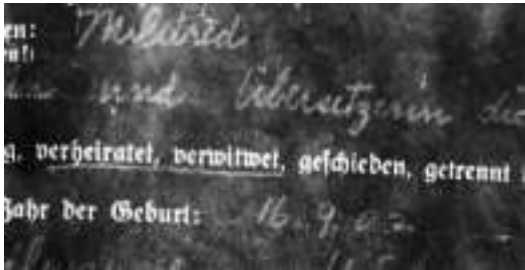 en: Mildred
und Übersetzerin
g, verheiratet, verwitwet, geschieden, getrennt
Jahr der Geburt: 16. 9. 02